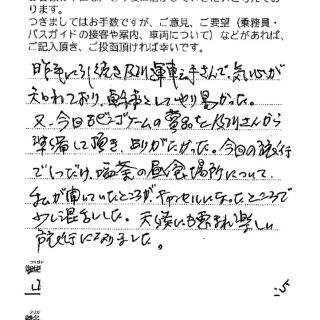 ります。
つきましてはお手数ですが、ご意見、ご要望（乗務員・
バスガイドの接客や案内、車両について）などがあれば、
ご記入頂き、ご投函頂ければ幸いです。
昨年に引続き及川運転手さんで、気心が
知れており、幹事としてやり易かった。
又、今回もビンゴゲームの賞品を及川さんから
準備して頂き、ありがたかった。今回の旅行
で1つだけ、塩釜の昼食場所について、
私が聞いていたところが、キャンセルになったところで
少し混乱した。天候にも恵まれ楽しい
旅行になりました。